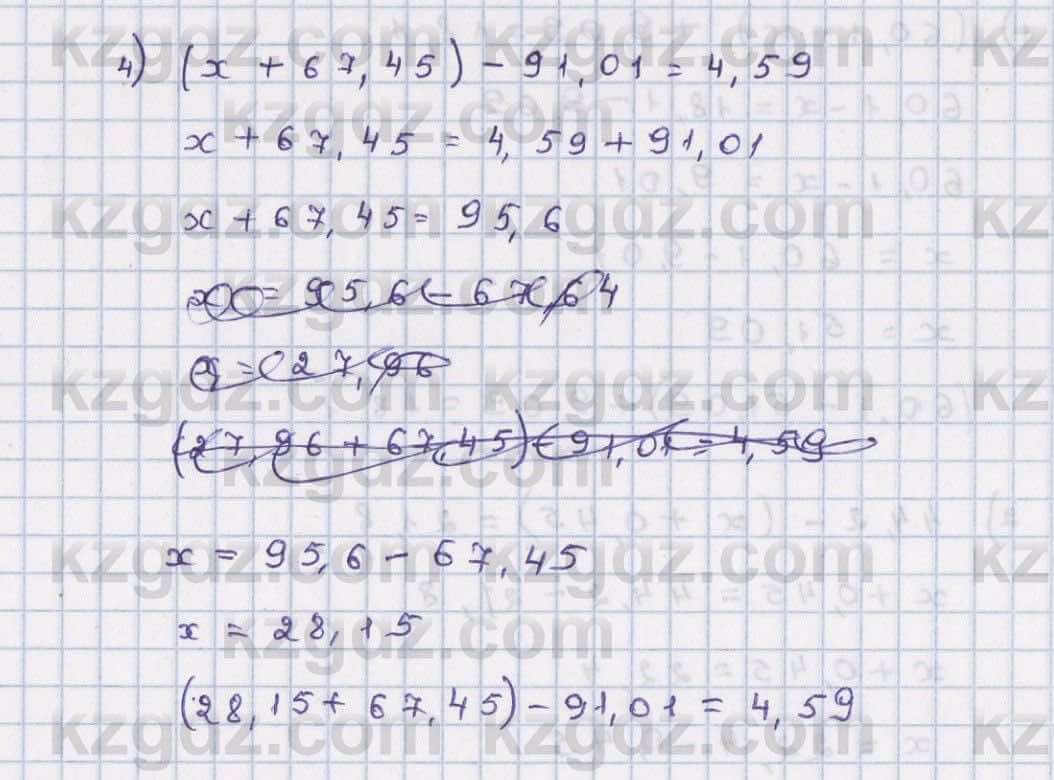 4) (x + 67,45) - 91,01 = 4,59
x + 67,45 = 4,59 + 91,01
x + 67,45 = 95,6
x = 95,6 - 67,64
x = 27,96
(27,96 + 67,45) - 91,01 = 4,59
x = 95,6 - 67,45
x = 28,15
(28,15 + 67,45) - 91,01 = 4,59
kzgdz.com